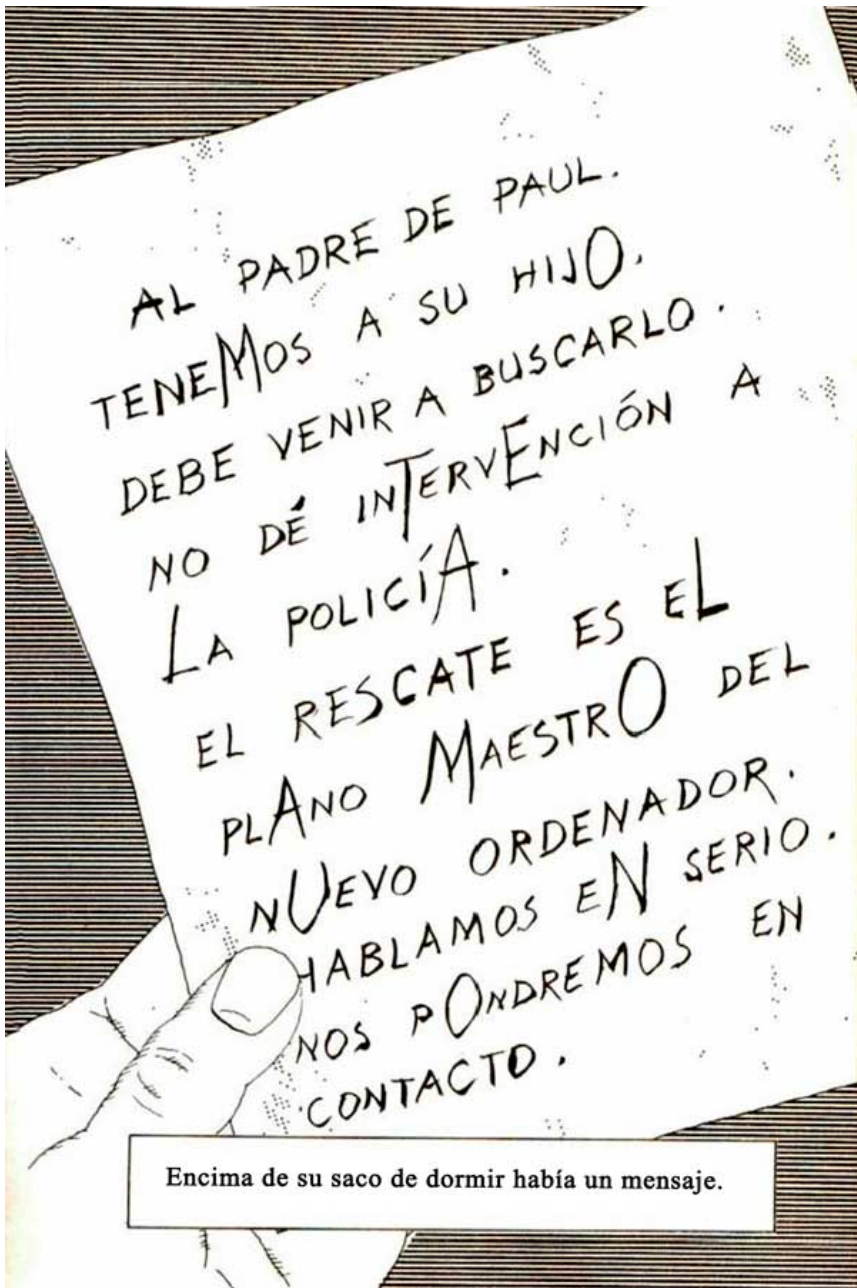 AL PADRE DE PAUL.
TENEMOS A SU HIJO.
DEBE VENIR A BUSCARLO.
NO DÉ INTERVENCIÓN A
LA POLICÍA.
EL RESCATE ES EL
PLANO MAESTRO DEL
NUEVO ORDENADOR.
HABLAMOS EN SERIO.
NOS PONDREMOS EN
CONTACTO.
Encima de su saco de dormir había un mensaje.